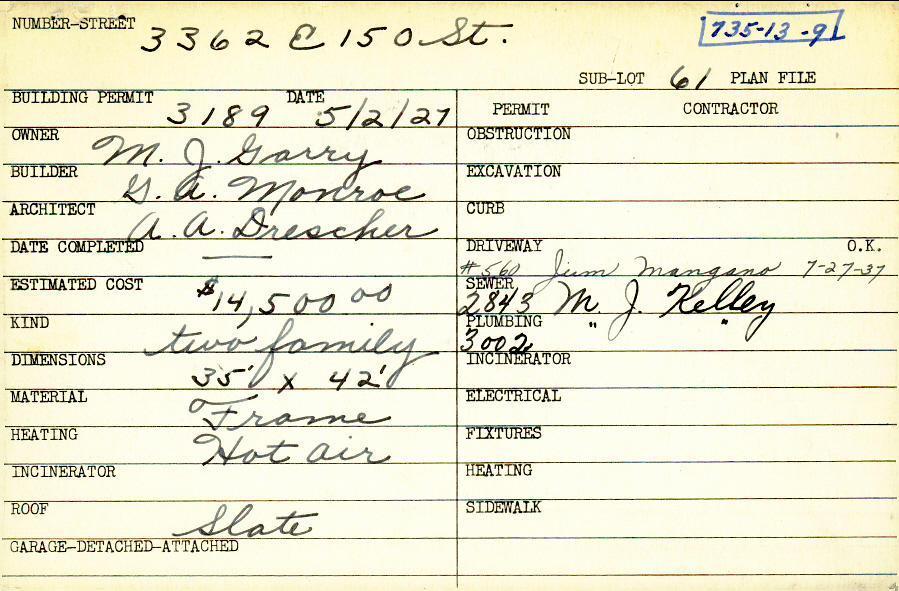 NUMBER-STREET 3362 E 150 St. 735-13-9
SUB-LOT 61 PLAN FILE
BUILDING PERMIT 3189 DATE 5/2/27
PERMIT CONTRACTOR
OWNER M. J. Garry
OBSTRUCTION
BUILDER G. A. Monroe
EXCAVATION
ARCHITECT A. A. Drescher
CURB
DATE COMPLETED ——
DRIVEWAY O.K.
#560 Jim Mangano 7-27-37
ESTIMATED COST $14,500 00
SEWER
2843 M. J. Kelley
KIND two family
PLUMBING " "
3002
DIMENSIONS 35' x 42'
INCINERATOR
MATERIAL Frame
ELECTRICAL
HEATING Hot air
FIXTURES
INCINERATOR
HEATING
ROOF Slate
SIDEWALK
GARAGE-DETACHED-ATTACHED